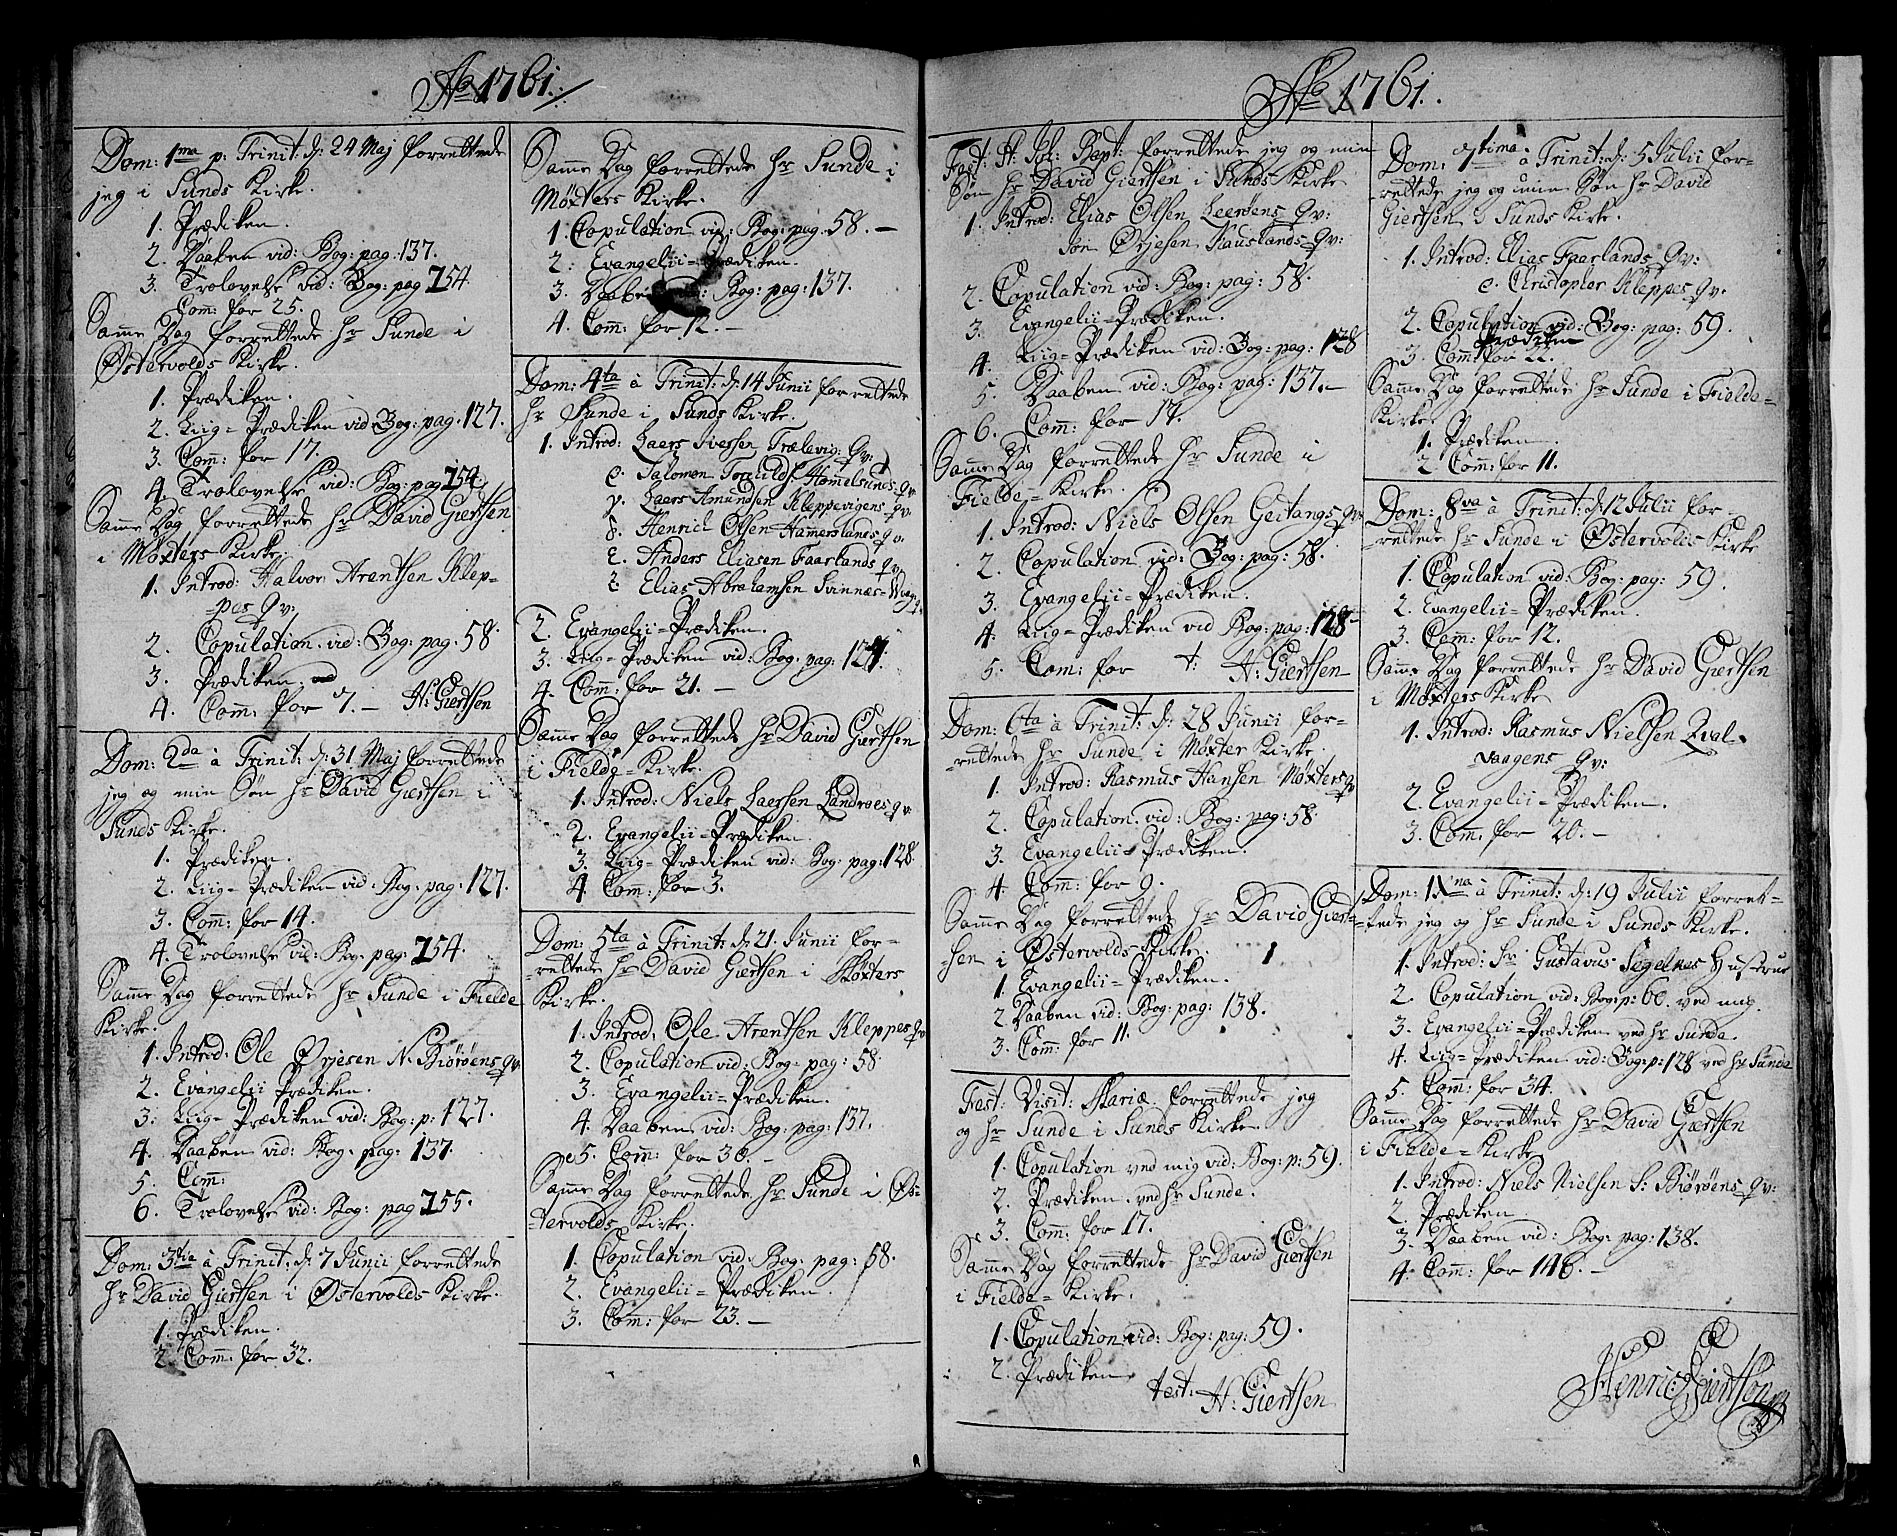 Ao 1761.
Dom: 1ma p: Trinit: d: 24 Maj forrettede
jeg i Sunds Kirke.
1. Prædiken.
2. Daaben vid: Bog: pag: 137.
3. Trolovelse vid: Bog: pag 154.
Com: for 25.
Samme Dag forrettede hr Sunde i
Østervolds Kirke.
1. Prædiken.
2. Liig-Prædiken vid: Bog: pag: 127.
3. Com: for 17.
4. Trolovelse vid: Bog: pag 154.
Samme Dag forrettede hr David Giertsen
i Møxters Kirke.
1. Introd: Halvor Arentsen Klep-
pes qv:
2. Copulation vid: Bog: pag: 58.
3. Prædiken.
4. Com: for 7. - H: Giertsen
Dom: 2da à Trinit: d: 31. Maj forrettede
jeg og min Søn hr David Giertsen i
Sunds Kirke.
1. Prædiken.
2. Liig-Prædiken vid: Bog: pag: 127.
3. Com: for 14.
4. Trolovelse vid: Bog: pag: 154.
Samme Dag forrettede hr Sunde i Fielde
Kirke.
1. Introd: Ole Ørjesen N. Biørøens qv
2. Evangelii Prædiken.
3. Liig-Prædiken vid: Bog: p: 127.
4. Daaben vid: Bog: pag: 137.
5. Com:
6. Trolovelse vid: Bog: pag 155.
Dom: 3tia à Trinit: d: 7 Junii forrettede
hr David Giertsen i Østervolds Kirke.
1. Prædiken.
2. Com: for 32.
Samme Dag forrettede hr Sunde i
Møxters Kirke.
1. Copulation vid: Bog: pag: 58. -
2. Evangelii-Prædiken.
3. Daaben vid: Bog: pag: 137.
4. Com: for 12. -
Dom: 4ta à Trinit: d: 14 Junii forrettede
hr Sunde i Sunds Kirke.
1. Introd: Laers Iversen Trælevig: qv:
Salomon Torkilds: Hamelsunds qv
Laers Amundsen Kleppevigens qv
Henrich Olsen Hammerslands qv.
Anders Eliasen Faarlands qv.
Elias Abrahamsen Svinnæs-Vaag:
2. Evangelii-Prædiken.
3. Liig-Prædiken vid: Bog: pag: 127.
4. Com: for 21. -
Samme Dag forrettede hr David Giertsen
i Fielde-Kirke.
1. Introd: Niels Laersen Landroes qv
2. Evangelii-Prædiken.
3. Liig-Prædiken vid: Bog: pag: 128.
4. Com: for 3.
Dom: 5ta à Trinit: d: 21. Junii for-
rettede hr David Giertsen i Møxters
Kirke.
1. Introd: Ole Arentsen Kleppes qv
2. Copulation vid: Bog: pag: 58
3. Evangelii-Prædiken.
4. Daaben vid: Bog: pag: 137.
5. Com: for 30. -
Samme Dag forrettede hr Sunde i Øs-
tervolds Kirke.
1. Copulation vid: Bog: pag: 58.
2. Evangelii-Prædiken.
3. Com: for 23. -
Ao 1761.
Fest: St: Joh: Bapt: forrettede jeg og min
Søn hr David Giertsen i Sunds Kirke
1. Introd: Elias Olsen Leerøens qv:
Jon Ørjesen Kauslands qv:
2. Copulation vid: Bog: pag: 58.
3. Evangelii-Prædiken.
4. Liig-Prædiken vid: Bog: pag: 128
5. Daaben vid: Bog: pag: 137. -
6. Com: for 17.
Samme Dag forrettede hr Sunde i
Fielde-Kirke.
1. Introd: Niels Olsen Geitangs qv
2. Copulation vid: Bog: pag: 58.
3. Evangelii-Prædiken.
4. Liig-Prædiken vid Bog: pag: 128-
5. Com: for H: Giertsen
Dom: 6ta à Trinit: d: 28 Junii for-
rettede hr Sunde i Møxter Kirke.
1. Introd: Rasmus Hansen Møxters qv
2. Copulation vid: Bog: pag: 58.
3. Evangelii-Prædiken.
4. Com: for 9.
Samme Dag forrettede hr David Giert-
sen i Østervolds Kirke.
1. Evangelii-Prædiken.
2. Daaben vid: Bog: pag: 138.
3. Com: for 11.
Fest: Visit: Mariæ forrettede jeg
og hr Sunde i Sunds Kirke.
1. Copulation ved mig vid: Bog: p: 59.
2. Prædiken ved hr Sunde.
3. Com: for 17.
Samme Dag forrettede hr David Giertsen
i Fielde-Kirke.
1. Copulation vid: Bog: pag: 59.
2. Prædiken.
test: H: Giertsen
Dom: 7tima à Trinit: d: 5 Julii for-
rettede jeg og min Søn hr David
Giertsen i Sunds Kirke.
1. Introd: Elias Faarlands qv:
Christopher Kleppes qv:
2. Copulation vid: Bog: pag: 59.
Prædiken
3. Com: for 22.
Samme Dag forrettede hr Sunde i Fielde-
Kirke.
1. Prædiken.
2. Com: for 11.
Dom: 8va à Trinit: d: 12 Julii for-
rettede hr Sunde i Østervolds Kirke
1. Copulation vid: Bog: pag: 59.
2. Evangelii-Prædiken.
3. Com: for 12.
Samme Dag forrettede hr David Giertsen
i Møxters Kirke
1. Introd: Rasmus Nielsen Qval-
vaagens qv:
2. Evangelii-Prædiken.
3. Com: for 20. -
Dom: IXna à Trinit: d: 19 Julii forret-
tede jeg og hr Sunde i Sunds Kirke.
1. Introd: hr: Gustavus Segelnes Hustrue
2. Copulation vid: Bog: p: 60. ved mig
3. Evangelii-Prædiken ved hr Sunde.
4. Liig-Prædiken vid: Bog: p: 128 ved hr Sunde
5. Com: for 34.
Samme Dag forrettede hr David Giertsen
i Fielde-Kirke
1. Introd: Niels Nielsen S: Biørøens qv:
2. Prædiken.
3. Daaben vid: Bog: pag: 138.
4. Com: for 146. -
Henric Giertsen